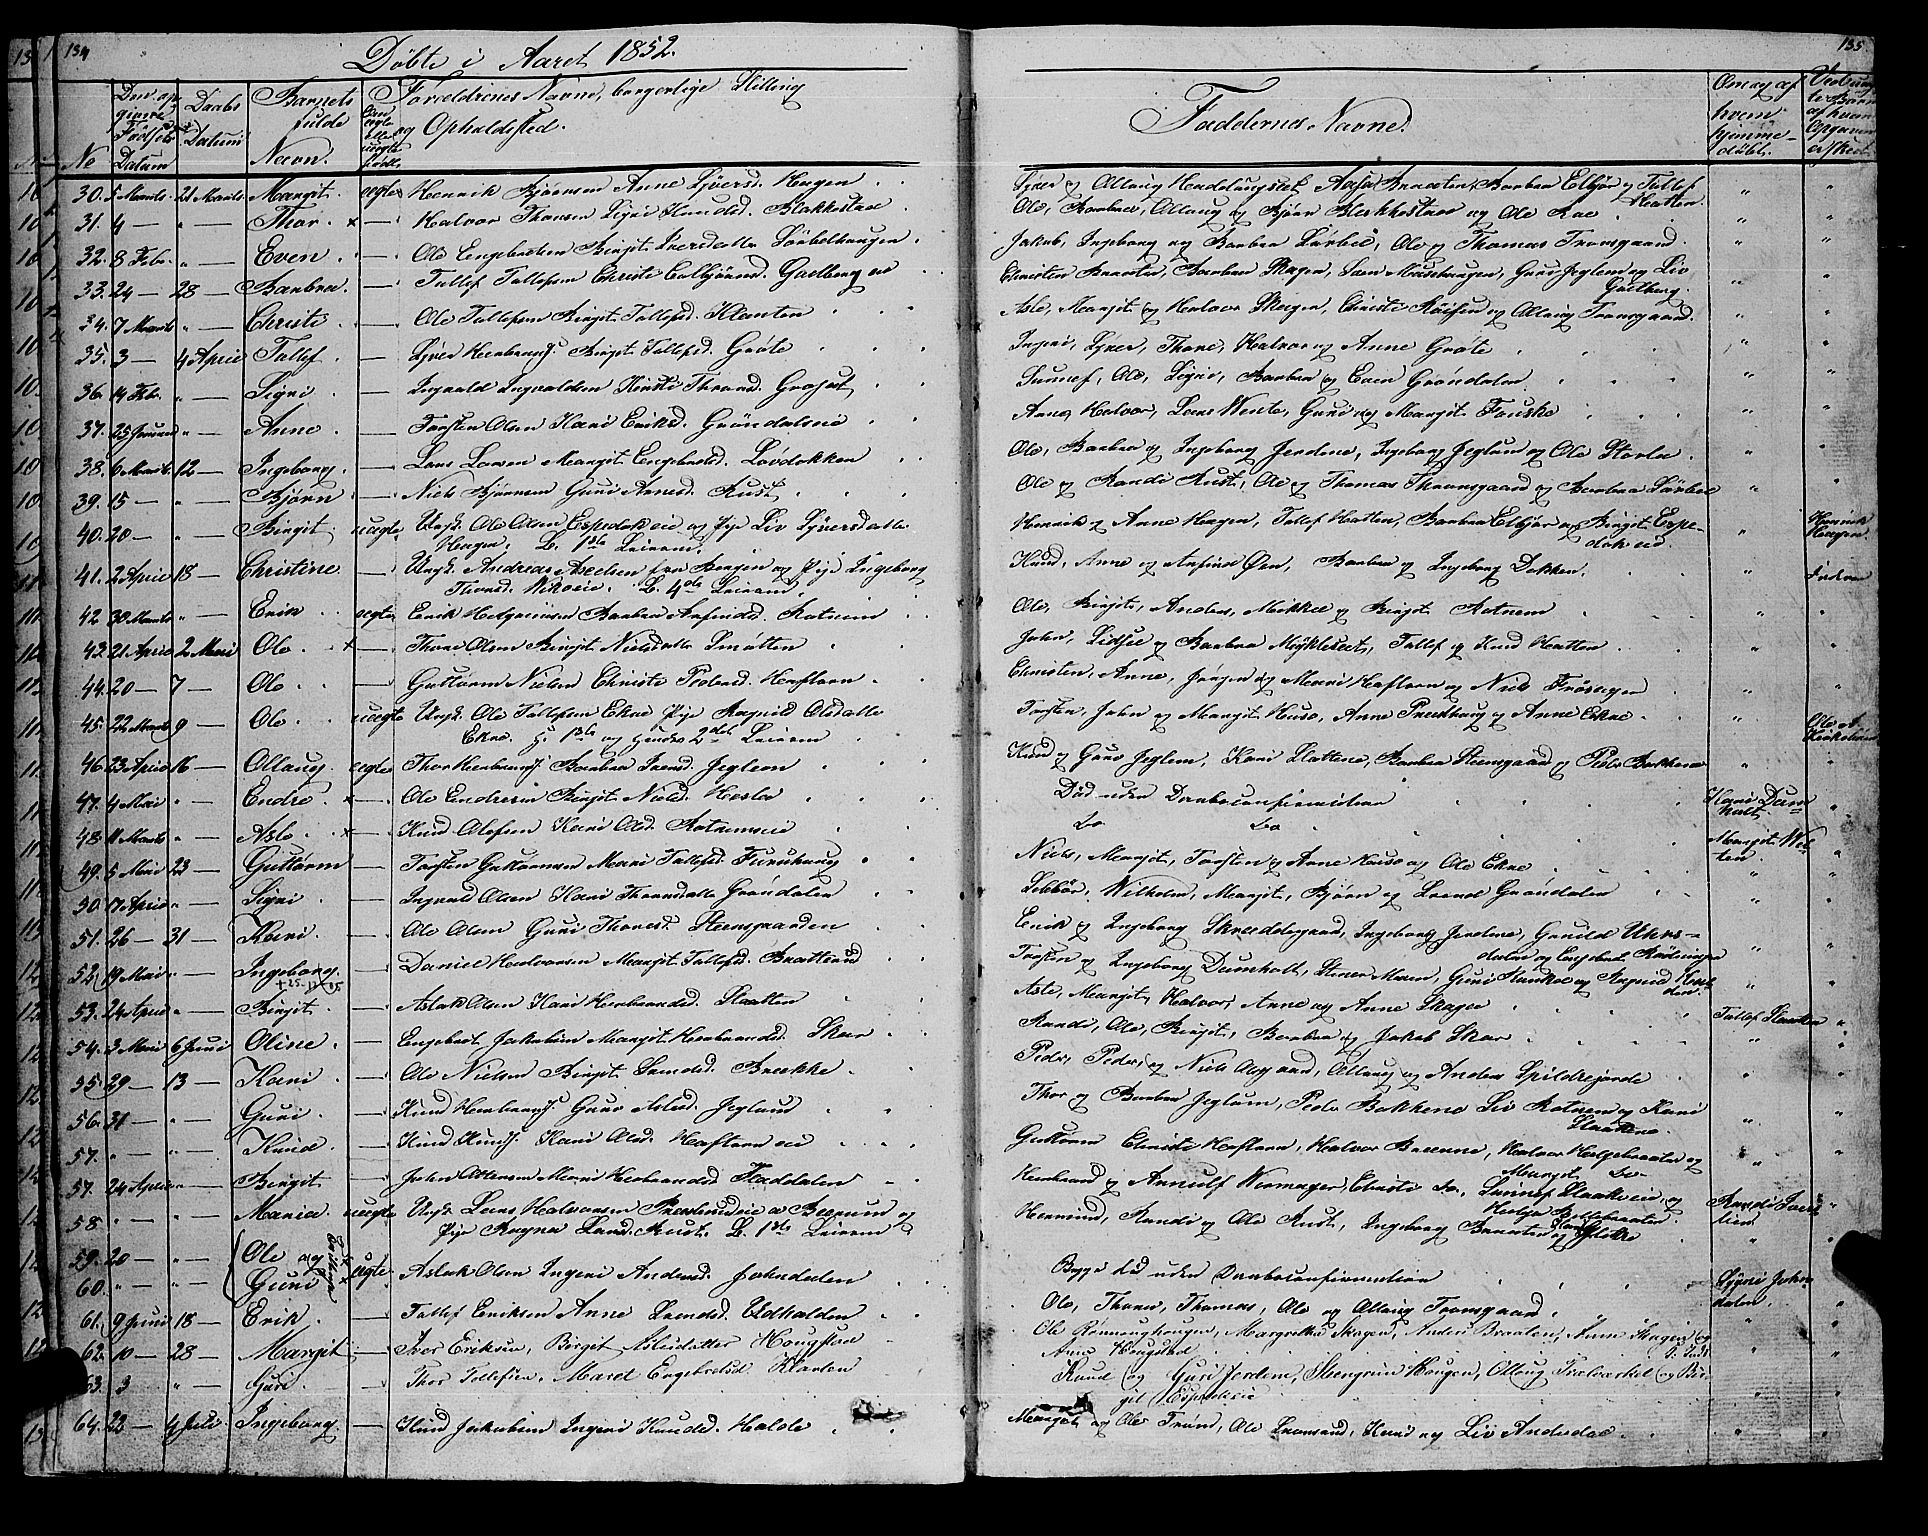 134
Döbte i Aaret 1852.
No
Den op-
givne
Födsels
Datum
Daabs
Datum
Barnets
fulde
Navn.
Forældrenes Navne, borgerlige Stilling
og Opholdssted.
30. 5 Marts 21 Marts Margit. ægte Henrik Bjørnsen Anne Syversd. Haugen
31. 4 — " — Thor. x — Halvor Thorsen Signi Knudsd. Blakkestad
32. 8 Febr. " — Even. — Ole Engebretsen Birgit Iversdatter Sørbelhaugen
33. 24 — 28 — Barbra. — Tollef Tollefsen Christi Eilbjørnsd. Gulberg eie
34. 7 Marts " — Christi. — Ole Tollefsen Birgit Tollefsd. Klanten
35. 3 — 4 April Tollef. — Syver Herbrands. Birgit Tollefsd. Gröte
36. 14 Febr. " — Signi — Ingvald Ingvaldsen Kirsti Thorsd. Grøset
37. 25 Januar " — Anne. — Torsten Olsen Kari Eriksd. Gröndalseie
38. 6 Marts 12 — Ingeborg. — Lars Larsen Margit Engebretsd. Lövdokken
39. 15 — " — Bjørn — Niels Bjørnsen Guri Arnesd. Rust
40. 20 — " — Birgit uægte Ungk. Ole Olsen Espedokeie og Pige Liv Syversdatter
Haugen. B. 1ste Leierm.
41. 2 April 18 — Christine. — Ungk. Andreas Axelsen fra Bergen og Pige Ingeborg
Thorsd. Vikeeie. B. 4de Leierm.
42 30 Marts " — Erik ægte Erik Helgesen Barbra Arfindsd. Rotneim
43. 21 April 2 Mai Ole. x — Thore Olsen Birgit Nielsdatter Smøtten
44. 20 — 7 — Ole. — Guttorm Nielsen Christi Pedersd. Haftorn
45. 22 Marts 9 — Ole. uægte Ungk. Ole Tollefsen Ekre Pige Ragnild Olsdatter
Ekre. H. 1ste og hendes 2det Leierm
46. 23 April 16 — Ollaug. ægte Thor Herbrands. Barbra Svensd. Jeglem
47. 4 Mai " — Endre. x — Ole Endresen Birgit Nielsd. Hesla
48. 11 Marts " — Aslo. x — Knud Olefsen Kari Olsd. Rotnemseie
49. 5 Mai 23 — Guttorm — Torsten Guttormsen Mari Tollefsd. Furuhaug
50 17 April " — Signi. — Ingvald Olsen Kari Thorsdatter Gröndalen
51. 26 — 31 — Kari. — Ole Olsen Guri Thoresd. Steensgaarden
52. 19 Mai " — Ingeborg. — Daniel Halvorsen Margit Tollefsd. Bratterud
53. 24 April " — Birgit. — Aslak Olsen Kari Herbrandsd. Slaatten
54. 3 Mai 6 Juni Oline. — Engebret Jakobsen Margit Herbrandsd. Skar
55. 29 — 13 — Kari. — Ole Nielsen Birgit Svendsd. Brekke.
56. 31 — " — Guri. — Knud Herbrands. Guro Aslesd. Jeglum
57. " — " — Knud. — Knud Knuds. Kari Olsd. Haftorn eie
57. 24 April " — Birgit — John Ottersen Mari Herbrandsd. Kaddalen
58. " — " — Maria. uægte Ungk. Lars Halvorsen Prestrudeie a Bærum og
Pige Ragna Larsd. Rust. B. 1ste Leierm
59. 20 — " — Ole og Tvillinger ægte Aslak Olsen Ingeri Andersd. Johndalen
60. " — " — Guri
61. 9 Juni 18 — Erik. — Tollef Eriksen Anne Svendsd. Vedhalden
62. 10 — 28 — Margit — Iver Eriksen, Birget Aslesdatter Hougstad
63. 3 " — Guri. — Thor Tollefsen, Maret Engebretsd. Klanten
64. 22 — 4 Juli Ingeborg. — Knud Jakobsen Ingeri Knudsd. Halde
135
Faddernes Navne.
Om og af
hvem
hjemme-
døbt.
Syver og Ollaug Haddelungset, Aase Braaten, Barbra Eilbjør og Tollef
Hatten.
Ole, Barbra, Ollaug og Bjørn Blakkestad og Ole Lae
Jakob, Ingeborg og Barbra Sørbel, Ole og Thomas Tronsgaard.
Christen Braaten, Barbra Skagen, Sven Moushaugen, Guri Jeglem og Liv
Gulberg.
Asle, Margit og Halvor Skagen, Christi Roisen og Ollaug Tronsgaard.
Ingeri, Syver, Thore, Halvor og Anne Gröte
Sunnef, Ole, Signe, Barbra og Even Gröndalen
Anne, Halvor, Lars Wento, Guri og Margit Fauske
Ole, Barbra og Ingeborg Jordene, Ingeborg Jeglum og Ole Storlae
Ole og Randi Rust, Ole og Thomas Thronsgaard og Barbra Sørbel
Henrik og Anne Haugen, Tollef Hatten, Barbra Eilbjør og Birgit Espe-
dok eie. Henrik
Haugen
Knud, Anne og Arfind Øen, Barbra og Ingeborg Dokken. Faderen
Ole, Birgit, Anders, Mikkel og Birgit Rotnem
John, Sidsel og Barbra Myklesett, Tollef og Knud Hatten
Christen, Anne, Jörgen og Mari Haftorn og Niels Trøsugen
Torsten, John og Margit Huso, Anne Bredhaug og Anne Ekre Ole A.
Kirkebøen
Knud og Guro Jeglem, Kari Slattene, Barbra Steensgaard og Peder Bakkene
Død uden Daabsconfirmation Kari Dum
hult.
Do Do Margit Wol
ten
Niels, Margit, Torsten og Anne Huso og Ole Ekre
Sebbör, Wilhelm, Margit, Bjørn og Svend Gröndalen
Erik og Ingeborg Skreddergaard, Ingeborg Jordene, Gunild Ulvs-
dalen og Engebret Rødningen
Torsten og Ingeborg Dumholt, Stener Moren, Guri Stunkel og Ragnild
Asle, Margit, Halvor, Anne og Anne Skagen Tollef Slaatten
Randi, Ole, Birgit, Barbra og Jakob Skar
Peder, Peder, og Niels Aasgaard, Ollaug og Anders Spildrejorde
Thor og Barbra Jeglum, Peder Bakkene Liv Rotnem og Kari
Slaattene.
Guttorm Christi Haftorn, Halvor Breenne, Halvor Helgebraaten og
Margit Do
Herbrand og Annulf Wermager, Christi Do, Sunnef Slaatteeie, og
Helga Bellebraaten.
Hermund, Randi og Ole Rust, Ingeborg Braaten og Kari Klokke Randi Joers
lien
Begge død uden Daabsconfirmation Signi John
dalen.
Ole, Thore, Thomas, Ole og Ollaug Tronsgaard.
Ole Rønnenghougen, Margrethe Skagen, Anders Braaten, Anne Skagen og
Anne Hougstad
Knud og Guri Jordene, Steengrim Hougen, Ollaug Trælverket og Bir
git Espedoeie
Margit og Ole Trönd, Ole Tronsrud, Knud og Liv Andersdae.